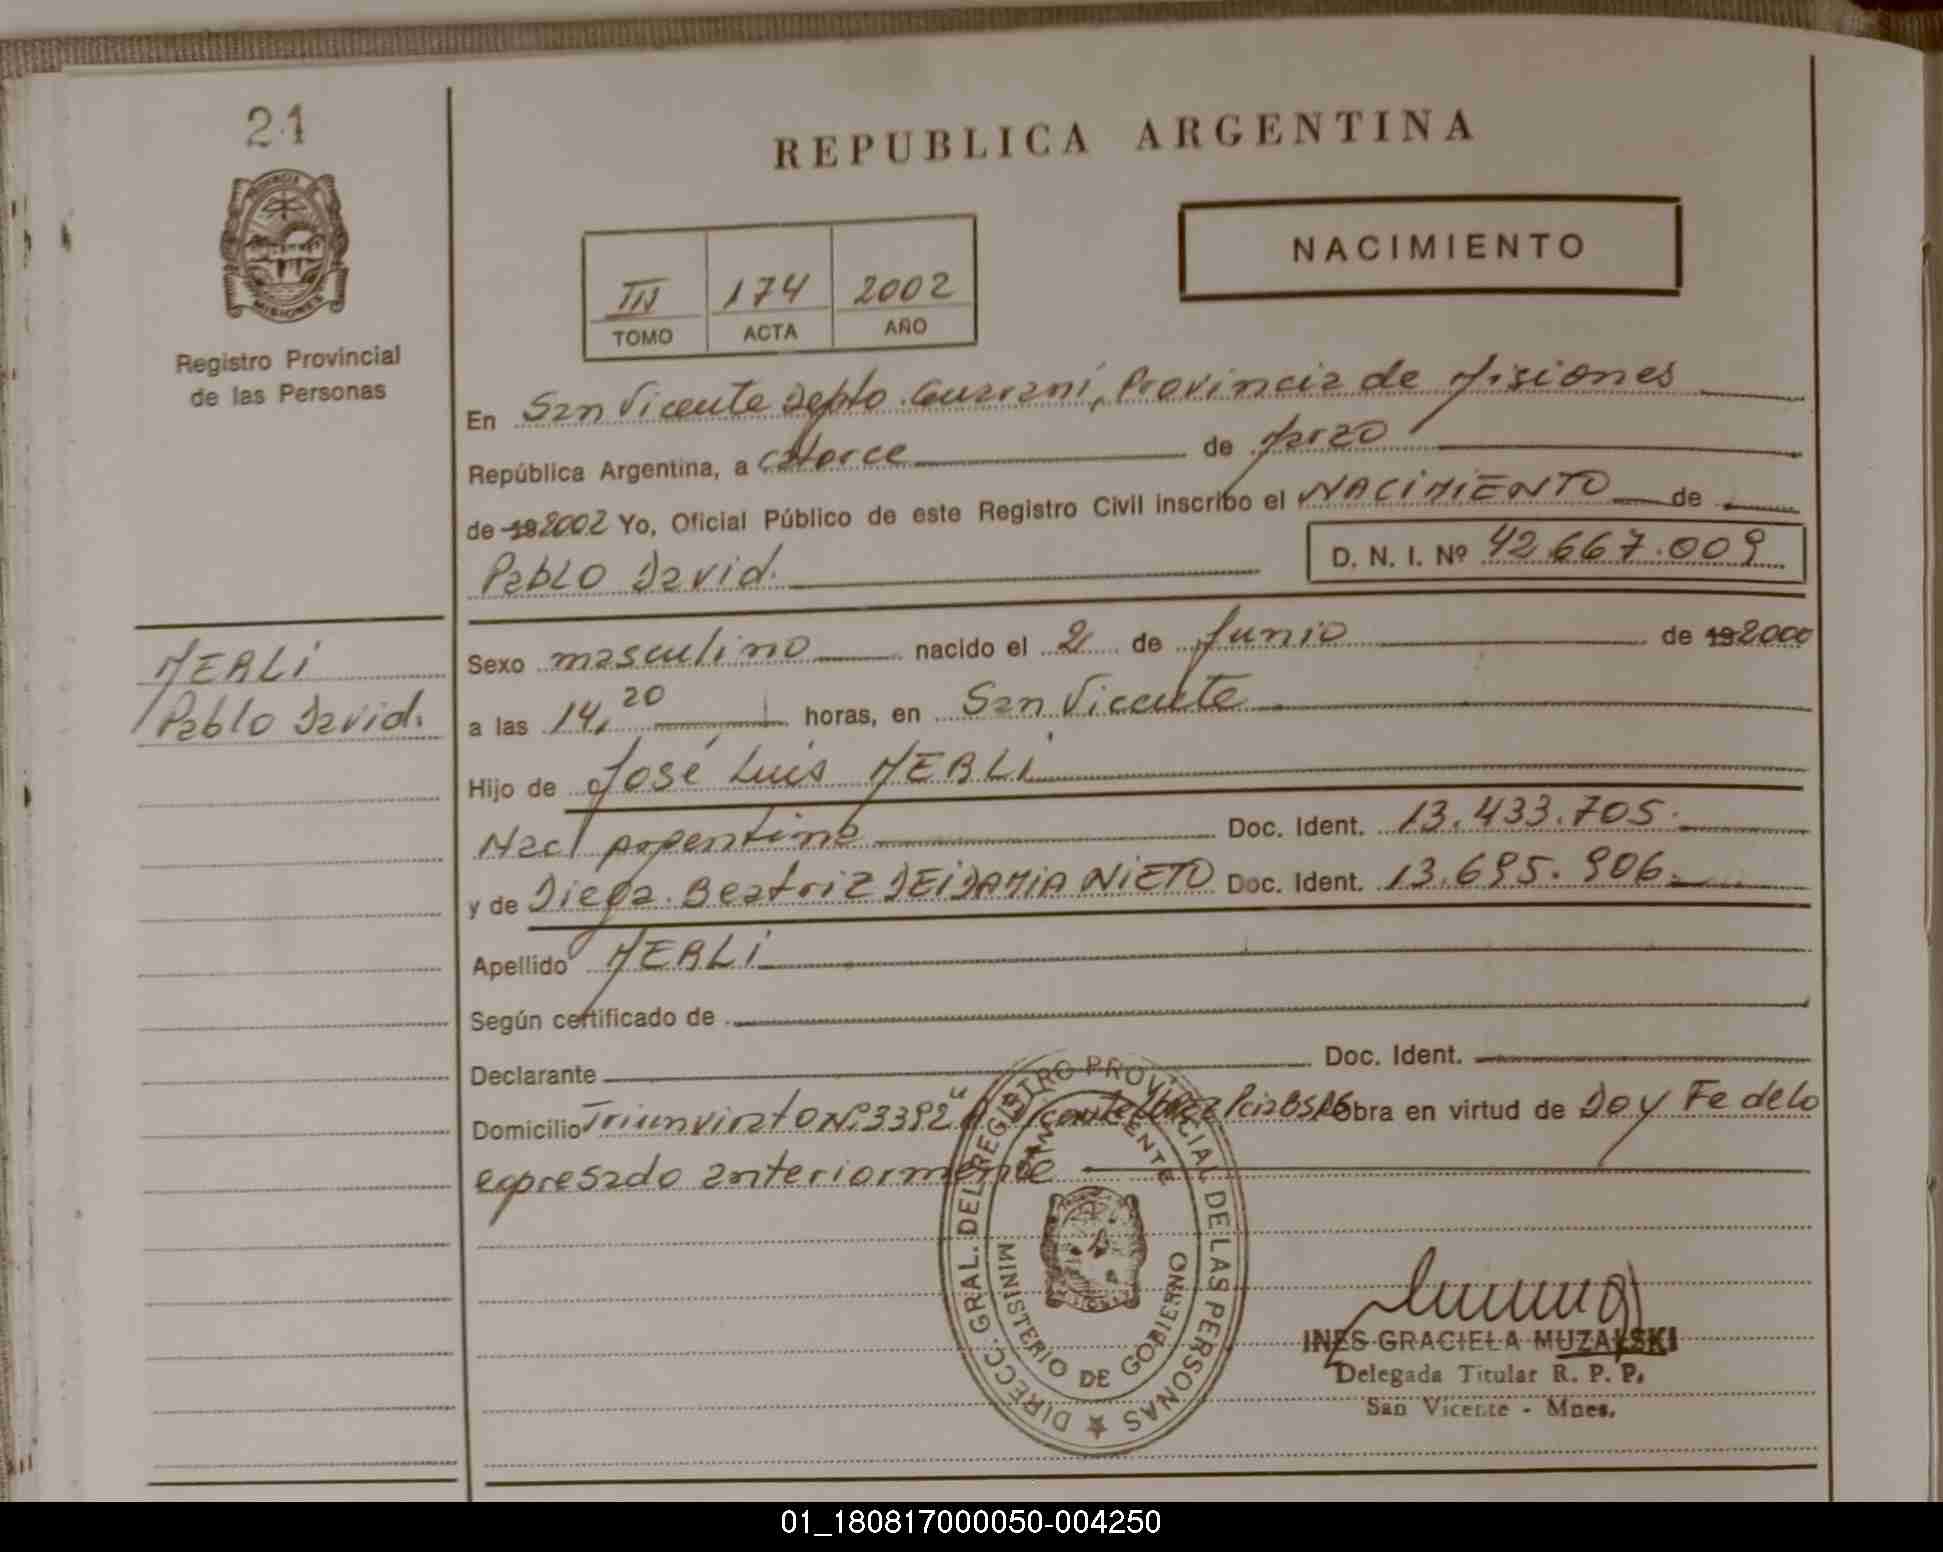 21
REPUBLICA ARGENTINA
NACIMIENTO
III 174 2002
TOMO ACTA AÑO
Registro Provincial
de las Personas
En San Vicente Depto. Guaraní, Provincia de Misiones
República Argentina, a catorce de Marzo
de 19 2002 Yo, Oficial Público de este Registro Civil inscribo el NACIMIENTO de
Pablo David. D. N. I. Nº 42.667.009
MERLI
Pablo David.
Sexo masculino nacido el 21 de Junio de 19 2000
a las 14,20 horas, en San Vicente
Hijo de José Luis MERLI
Nacl argentino Doc. Ident. 13.433.705.
y de Diega Beatriz DEIDAMIA NIETO Doc. Ident. 13.695.906.
Apellido MERLI
Según certificado de
Declarante Doc. Ident.
Domicilio Triunvirato Nº 3392 Vicente López Pcia Bs As Obra en virtud de Doy Fe de lo
expresado anteriormente
DIRECC. GRAL. DEL REGISTRO PROVINCIAL DE LAS PERSONAS
SAN VICENTE
MINISTERIO DE GOBIERNO
INES GRACIELA MUZALSKI
Delegada Titular R. P. P.
San Vicente - Mnes.
01_180817000050-004250